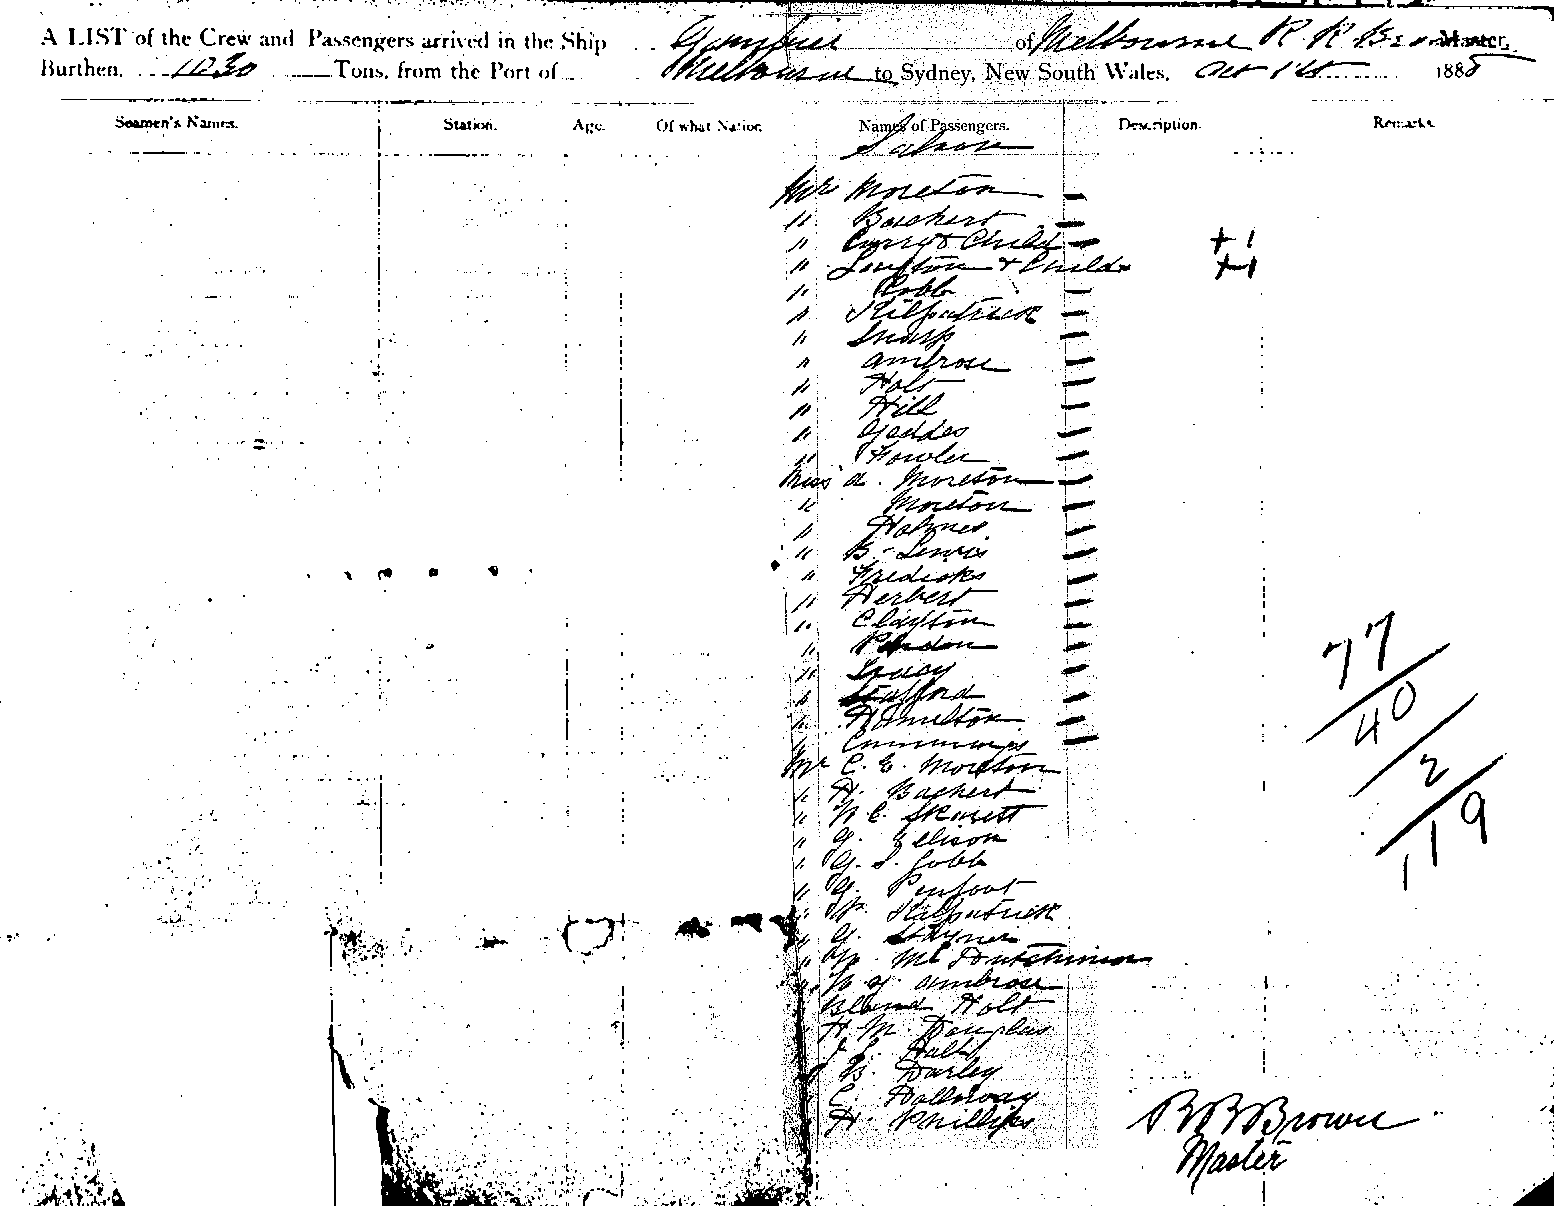 A LIST of the Crew and Passengers arrived in the Ship Gambier of Melbourne R R Brown Master,
Burthen, 1030 Tons, from the Port of Melbourne to Sydney, New South Wales, Oct 1st 1888
Seamen's Names. Station. Age. Of what Nation. Names of Passengers. Description. Remarks.
Saloon
Mrs Moreton
" Baehert
" Curry & Child + 1
" & Child + 1
" Cobb
" Kilpatrick
" Sharp
" Ambrose
" Holt
" Hill
" Geddes
" Fowler
Miss A. Moreton
" Moreton
" Holmes
" B. Lewis
" Fredicks
" Herbert
" Clayton
"
" Tracy
" Stafford
" Hamilton
" Cummings
Mr C. E. Moreton
" H. Baehert
" W. E.
" G. Elison
" G. S. Cobb
" G. Penfort
" W. Kilpatrick
" G. Stayner
" Mc Hutchinson
" W G Ambrose
Bland Holt
H M. Douglas
J. L. Hall
B. Darley
C. Holloway
H. Phillips
77
40
2
119
R R Brown
Master